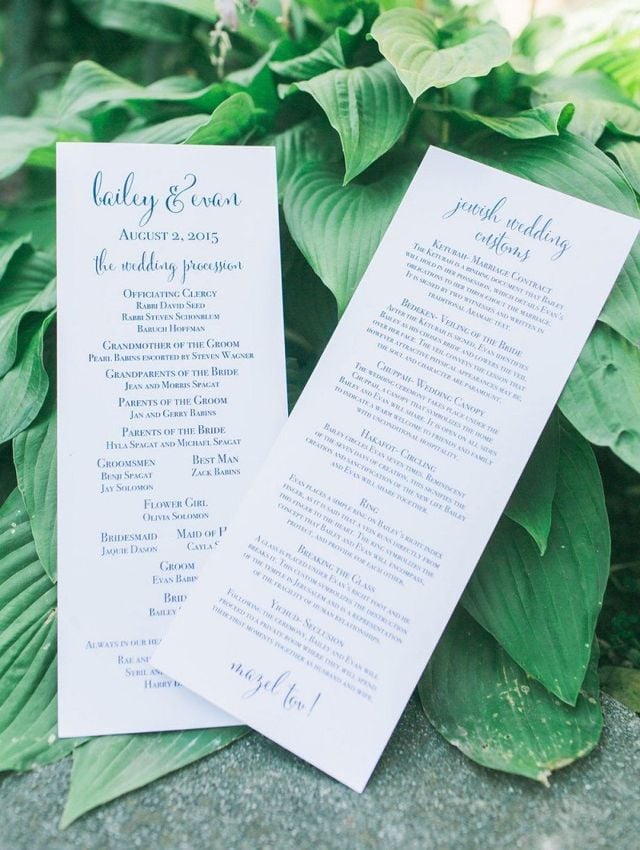 bailey & evan
August 2, 2015
the wedding procession
Officiating Clergy
Rabbi David Seed
Rabbi Steven Schonblum
Baruch Hoffman
Grandmother of the Groom
Pearl Babins escorted by Steven Wagner
Grandparents of the Bride
Jean and Morris Spagat
Parents of the Groom
Jan and Gerry Babins
Parents of the Bride
Hyla Spagat and Michael Spagat
Groomsmen Best Man
Benji Spagat Zack Babins
Jay Solomon
Flower Girl
Olivia Solomon
Bridesmaid Maid of H
Jaquie Dason Cayla S
Groom
Evan Babins
Brid
Bailey
Always in our hea
Rae and
Sybil and
Harry D
jewish wedding
customs
Ketubah- Marriage Contract
The Ketubah is a binding document that Bailey
will hold in her possession, which details Evan's
obligations to her throughout the marriage.
It is signed by two witnesses and written in
traditional Aramaic text.
Bedeken- Veiling of the Bride
After the Ketubah is signed, Evan identifies
Bailey as his chosen bride and lowers the veil
over her face. The veil conveys the lesson that
however attractive physical appearances may be,
the soul and character are paramount.
Chuppah- Wedding Canopy
The wedding ceremony takes place under the
Chuppah, a canopy that symbolizes the home
Bailey and Evan will share. It is open on all sides
to indicate a warm welcome to friends and family
with unconditional hospitality.
Hakafot- Circling
Bailey circles Evan seven times. Reminiscent
of the seven days of creation, this signifies the
creation and sanctification of the new life Bailey
and Evan will share together.
Ring
Evan places a simple ring on Bailey's right index
finger, as it is said that a vein runs directly from
this finger to the heart. The ring symbolizes the
concept that Bailey and Evan will encompass,
protect, and provide for each other.
Breaking the Glass
A glass is placed under Evan's right foot and he
breaks it. This custom symbolizes the destruction
of the Temple in Jerusalem and is a representation
of the fragility of human relationships.
Yichud- Seclusion
Following the ceremony, Bailey and Evan will
proceed to a private room where they will spend
their first moments together as husband and wife.
mazel tov!